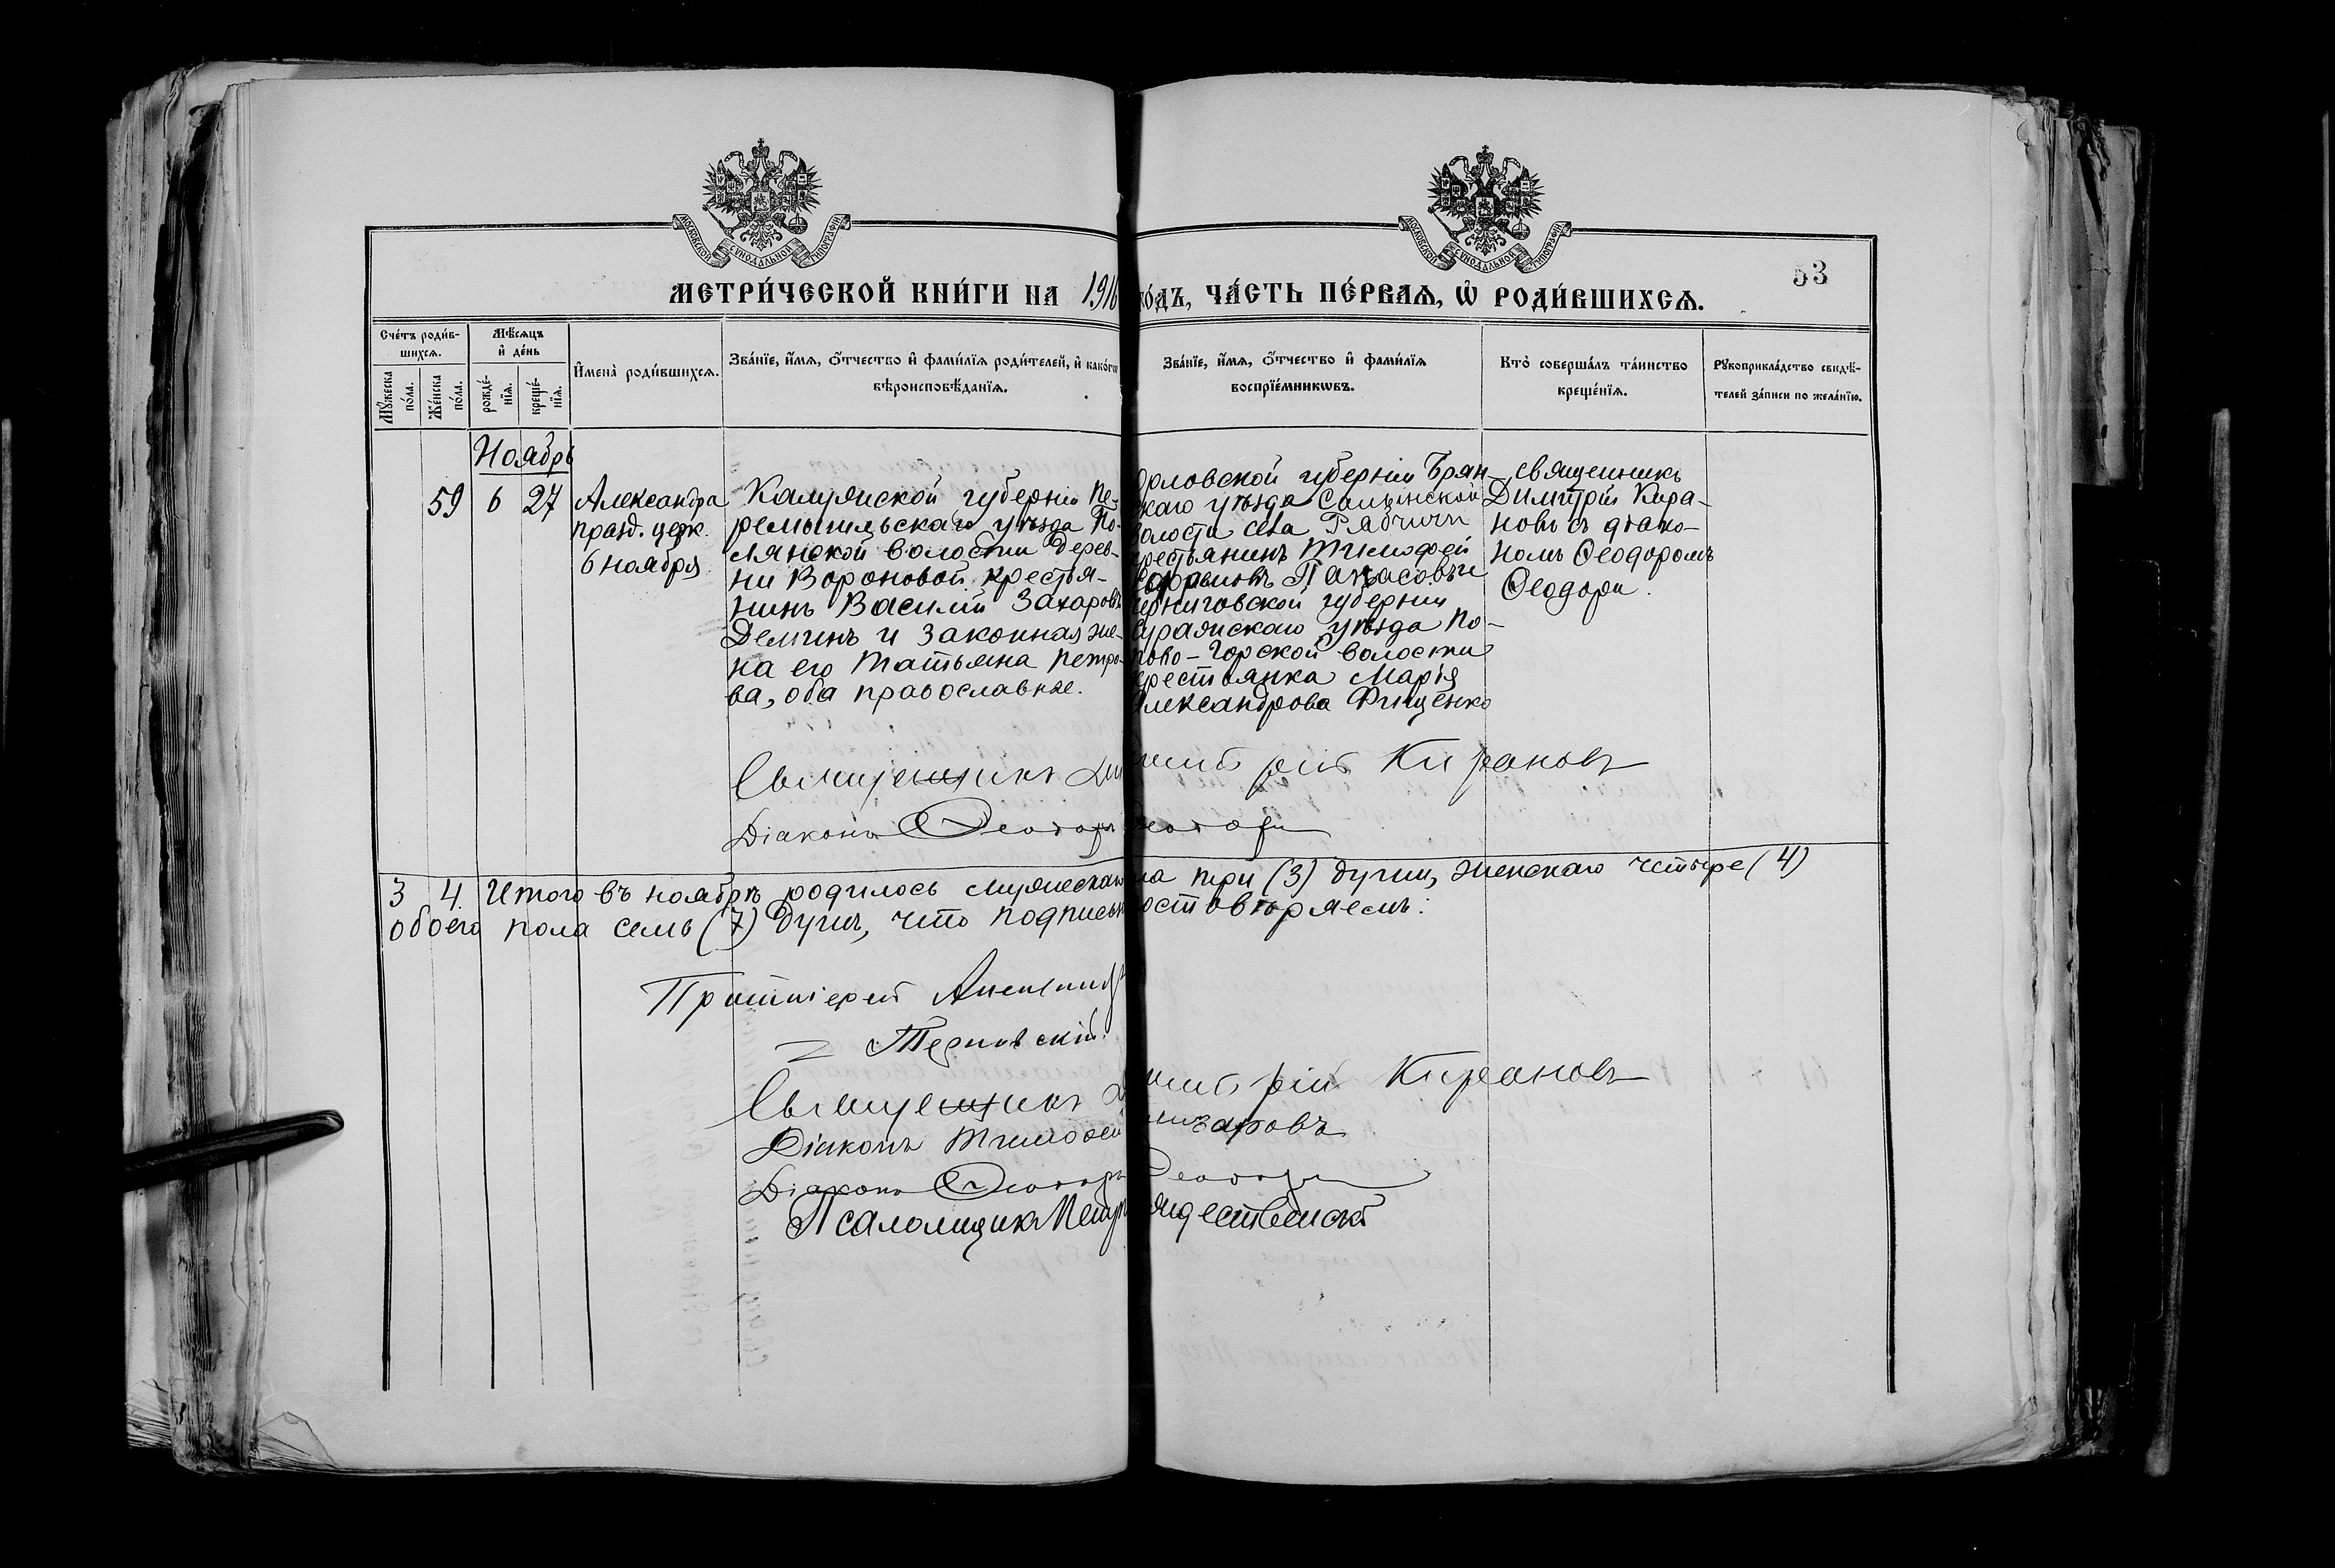 МОСКОВСКОЙ СѴНОДАЛЬНОЙ ТИПОГРАФІИ
МОСКОВСКОЙ СѴНОДАЛЬНОЙ ТИПОГРАФІИ
53
МЕТРИ́ЧЕСКОЙ КНИ́ГИ НА 1916
го́дъ, ЧА́СТЬ ПЕ́РВАѦ, Ѡ҆ РОДИ́ВШИХСѦ.
Сче́тъ роди́в-
шихсѧ.
Мꙋ́жеска по́ла.
Же́нска по́ла.
Мѣ́сѧцъ
и҆ де́нь
рожде́-
нїѧ.
креще́-
нїѧ.
И҆мена̀ роди́вшихсѧ.
Зва́нїе, и҆́мѧ, ѻ҆́тчество и҆ фами́лїѧ роди́телей, и҆ како́гѡ
вѣроисповѣ́данїѧ.
Зва́нїе, и҆́мѧ, ѻ҆́тчество и҆ фами́лїѧ
воспрїе́мникѡвъ.
Кто̀ соверша́лъ та́инство
креще́нїѧ.
Рꙋкоприкла́дство свидѣ́-
телей за́писи по жела́нїю.
Ноябрь
59 6 27
Александра
празд. церк.
6 ноября.
Калужской губернии Пе-
ремышльскаго уѣзда По-
лянской волости дерев-
ни Вороновой крестья-
нинъ Василій Захаровъ
Деминъ и законная же-
на его Татьяна Петро-
ва, оба православные.
Орловской губерніи Брян-
скаго уѣзда Салынской
волости села Рябчичи
крестьянинъ Тимофей
черниговской губерніи
Суражскаго уѣзда По-
пово-Горской волости
крестьянка Марія
Александрова Фищенко
священникъ
Димитрій Кира-
новъ съ діако-
номъ Ѳеодоромъ
Ѳеодори.
Священникъ Димитрій Кирановъ
Діаконъ Ѳеодоръ Ѳеодори
3 4. Итого въ ноябрѣ родилось мужескаго пола три (3) души, женскаго четыре (4)
обоего пола семь (7) душъ, что подписью удостовѣряемъ:
Протоіерей
Терновскій.
Священникъ Димитрій Кирановъ
Діаконъ Тимофей
Діаконъ Ѳеодоръ Ѳеодори
Псаломщикъ Петръ